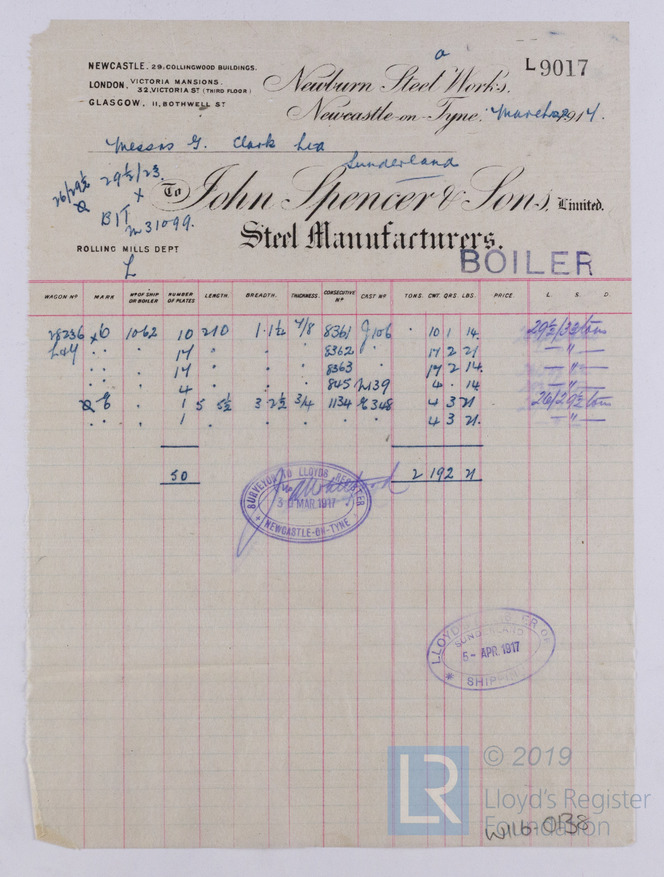 NEWCASTLE. 29, COLLINGWOOD BUILDINGS.
LONDON. VICTORIA MANSIONS.
32, VICTORIA ST (THIRD FLOOR)
GLASGOW. 11, BOTHWELL ST
a
L9017
Newburn Steel Works,
Newcastle-on-Tyne. March 1917.
Messrs G. Clark Ltd
Sunderland
26/29½ 29½/33.
x
BIT
31099.
To John Spencer & Sons, Limited.
Steel Manufacturers.
ROLLING MILLS DEPT
L
BOILER
WAGON Nº MARK Nº OF SHIP OR BOILER NUMBER OF PLATES LENGTH. BREADTH. THICKNESS. CONSECUTIVE Nº CAST Nº TONS. CWT. QRS. LBS. PRICE. L. S. D.
28236 x6 1062 10 210 1·1¼ 7/8 8361 J106 · 10 1 14 29½/33 tons
· · · 17 · · · 8362 · 17 2 21 — " —
· · · 17 · · · 8363 · 17 2 14 — " —
· · · 4 · · · 845 139 4 · 14 — " —
6 · 1 5 5½ 3 2½ 3/4 1134 348 4 3 21 26/29½ tons
· · · 1 · · · · · 4 3 21 — " —
50 2 19 2 21
SURVEYOR TO LLOYDS REGISTER
30 MAR. 1917
NEWCASTLE-ON-TYNE
LLOYD'S REGISTER OF
SUNDERLAND
5- APR. 1917
SHIPPING
LR
© 2019
Lloyd's Register
Foundation
W116-0138